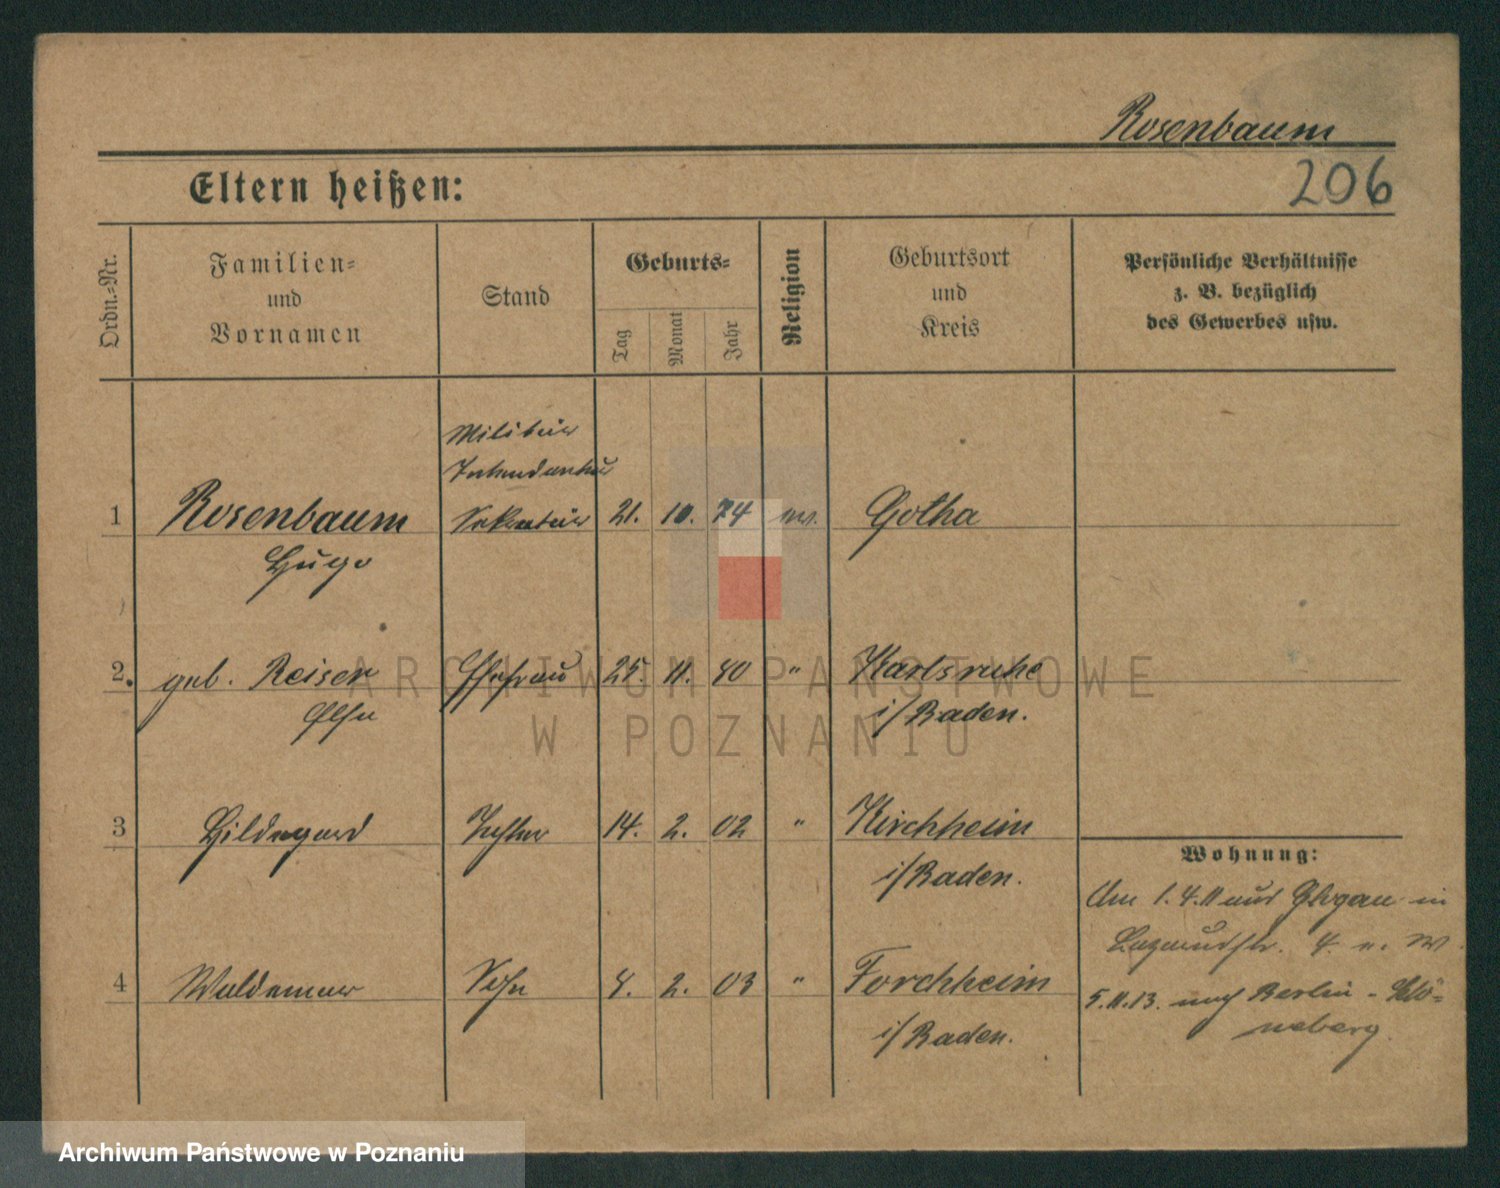 Rosenbaum
206
Eltern heißen:
Ordn.-Nr.
Familien-
und
Vornamen
Stand
Geburts-
Tag
Monat
Jahr
Religion
Geburtsort
und
Kreis
Persönliche Verhältnisse
z. B. bezüglich
des Gewerbes usw.
Militär
Intendantur
1 Rosenbaum Sekretär 21. 10. 74 ev. Gotha
Hugo
2. geb. Reiser Ehefrau 25. 11. 80 " Karlsruhe
Else i/Baden.
3 Hildegard Tochter 14. 2. 02 " Kirchheim
i/Baden.
4 Waldemar Sohn 4. 2. 03 " Forchheim
i/Baden.
Wohnung:
Am 1.4.11 aus Glogau in
4.
5.11.13. nach Berlin-Schö-
neberg.
ARCHIWUM PAŃSTWOWE
W POZNANIU
Archiwum Państwowe w Poznaniu